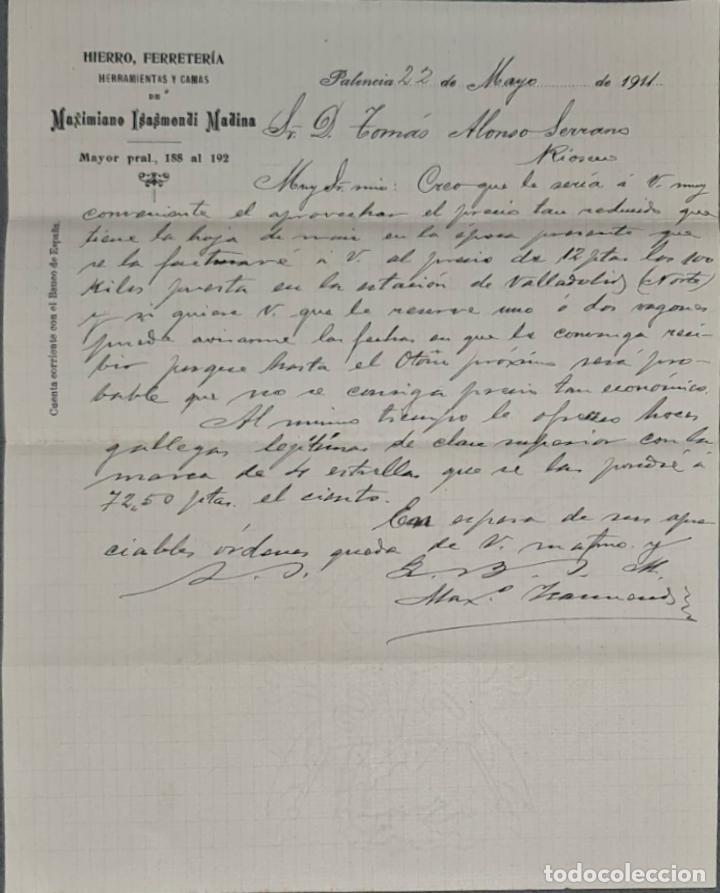 HIERRO, FERRETERÍA
HERRAMIENTAS Y CAMAS
DE
Maximiano Isasmendi Madina
Mayor pral., 188 al 192
Cuenta corriente con el Banco de España.
Palencia 22 de Mayo de 1911
Sr. D. Tomás Alonso Serrano
Rioseco
Muy Sr. mio: Creo que le sería á V. muy
conveniente el aprovechar el precio tan reducido que
tiene la hoja de maiz en la época presente que
se la facturaré á V. al precio de 12 ptas los 100
kilos puesta en la estación de Valladolid (Norte)
y si quiere V. que le reserve uno ó dos vagones
puede avisarme las fechas en que le convenga reci-
birlo porque hasta el Otoño próximo será pro-
bable que no se consiga precio tan económico.
Al mismo tiempo le ofrezco hoces
gallegas legítimas de clase superior con la
marca de 4 estrellas que se las pondré á
72,50 ptas. el ciento.
En espera de sus apre-
ciables órdenes queda de V. m. atmo. y
s. s. Q. B. S. M.
Maxº Isasmendi
todocoleccion